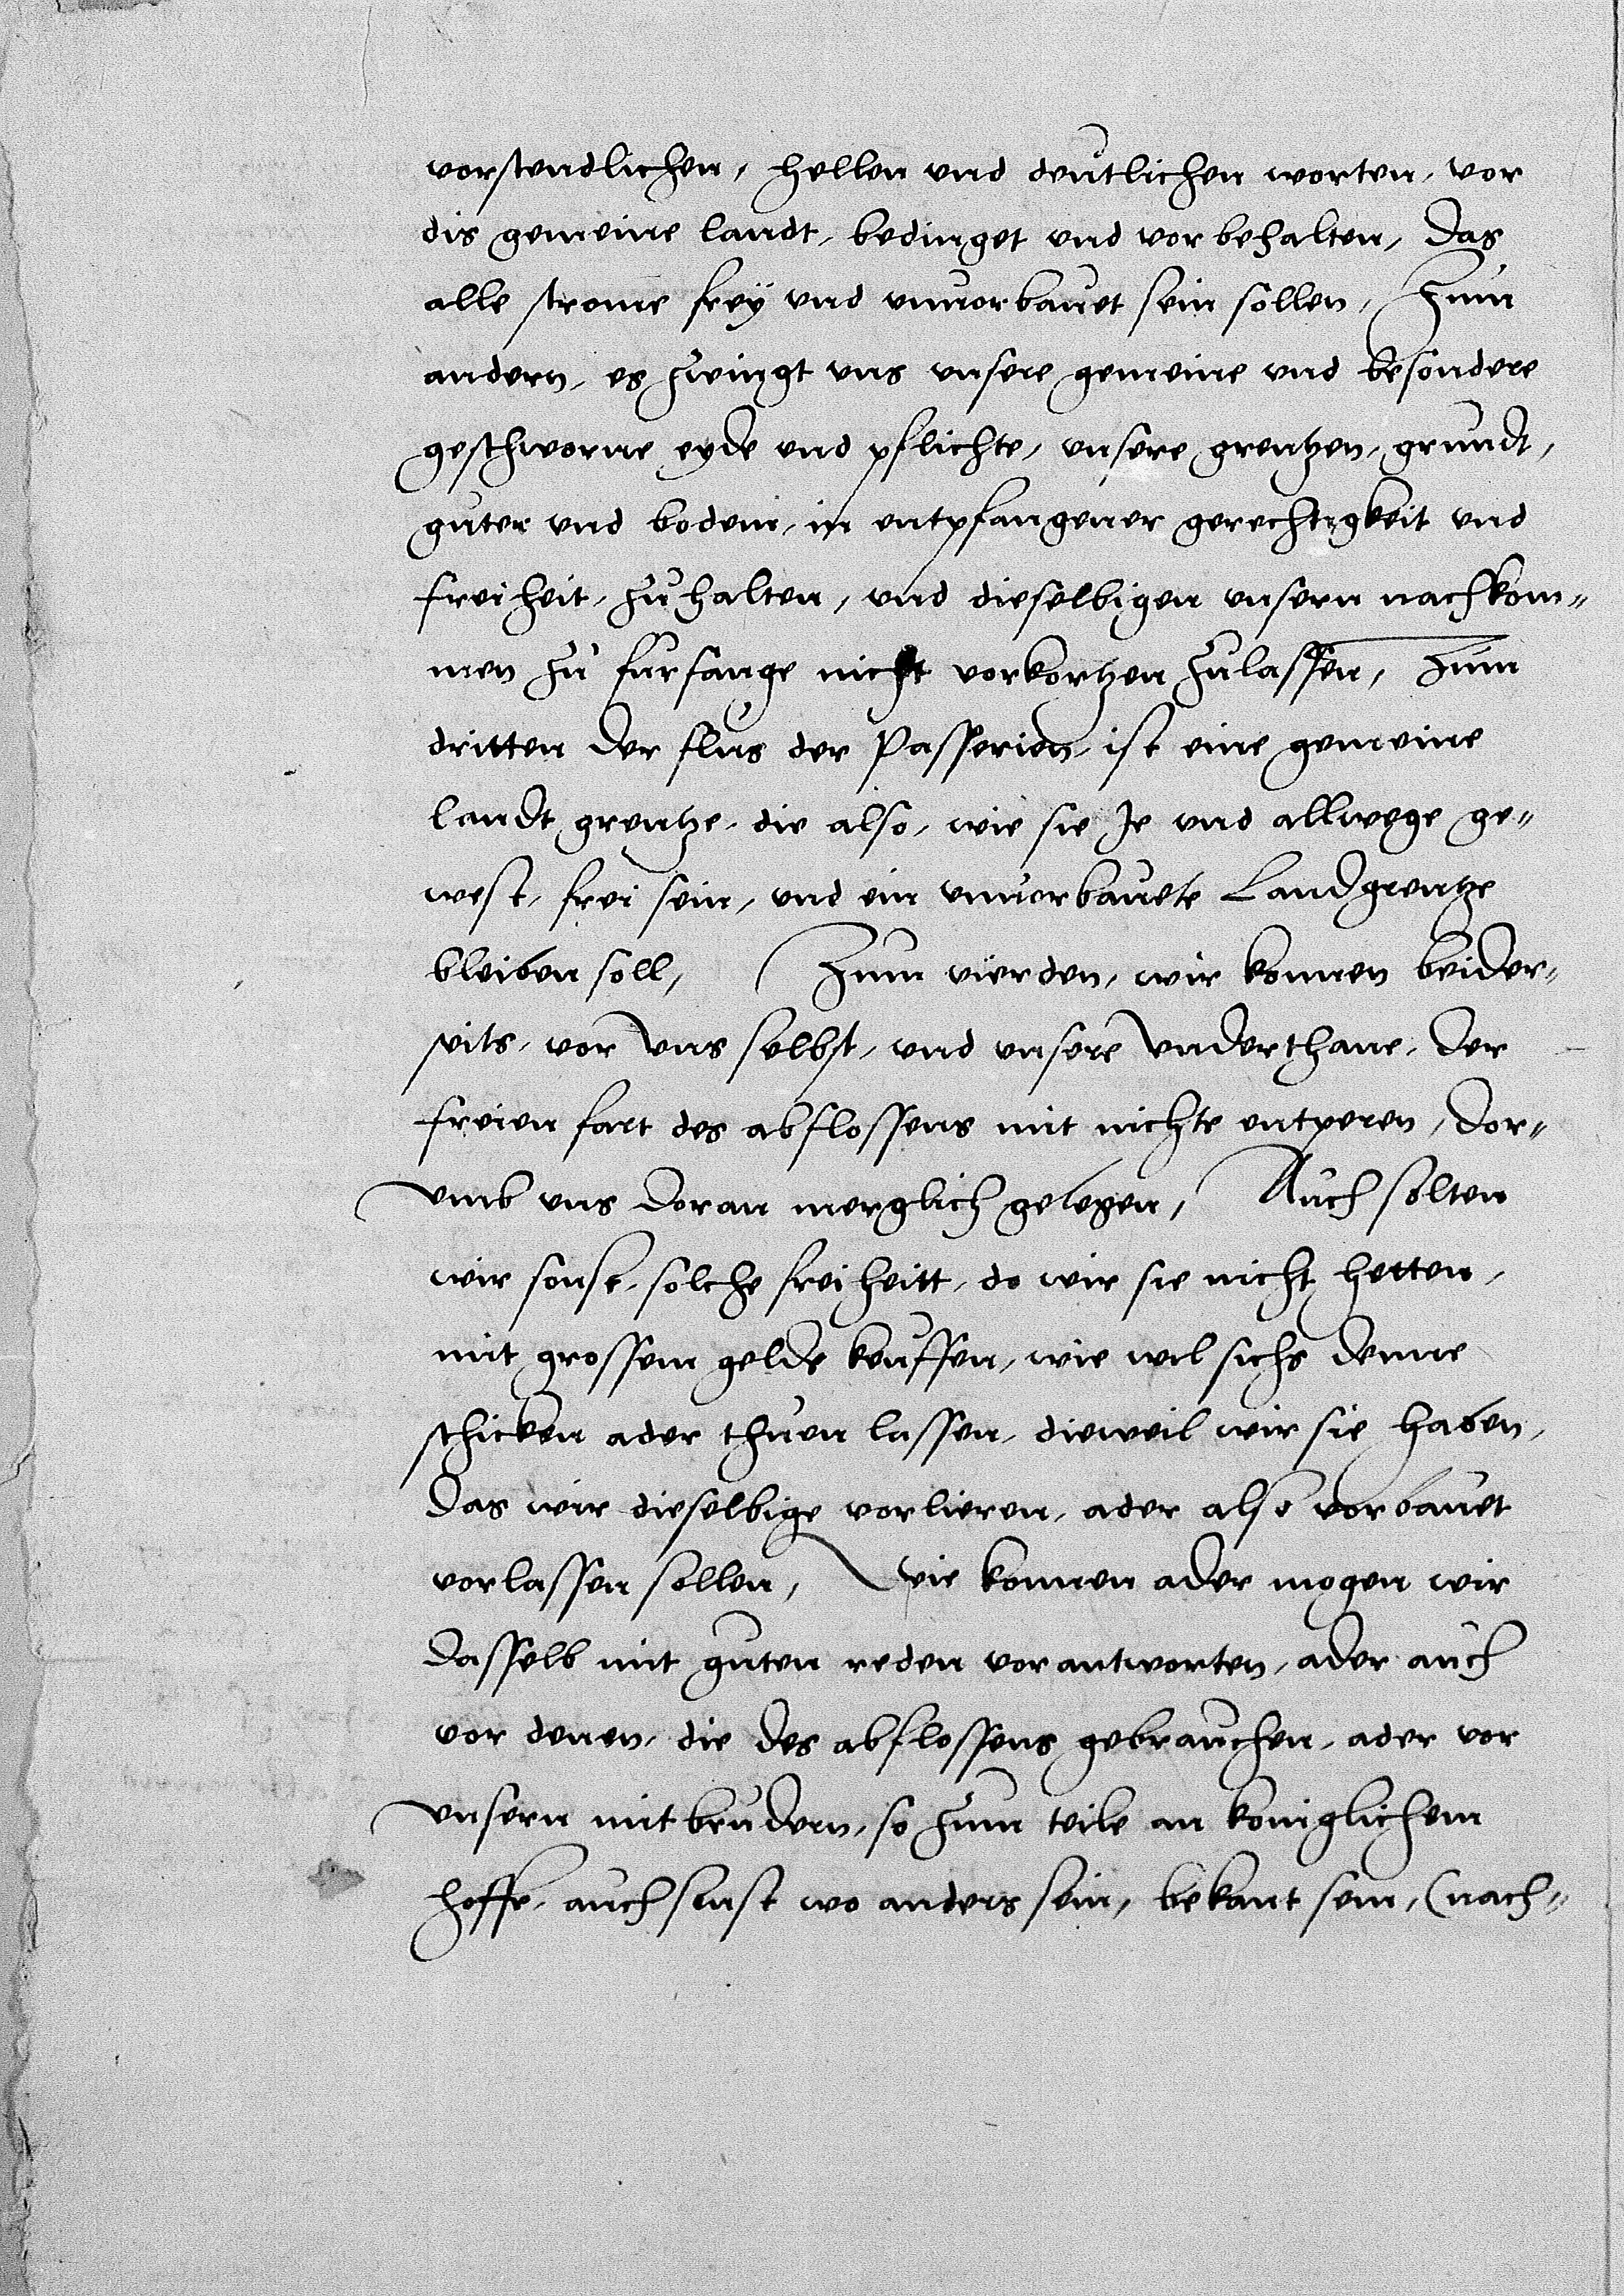 vorstendlichen, hellen vnd deutlichen worten, vor
dis gemeine landt, bedinget vnd vorbehalten, das
alle strome freÿ vnd vnuorbauet sein sollen, Zum
andern, es zwingt vns vnsere gemeine vnd besondere
geschworne eyde vnd pflichte, vnsere grentzen, grundt,
guter vnd bodem, in entpfangener gerechtigkeit vnd
freiheit, zuhalten, vnd dieselbigen vnsern nachkom„
men zu furfange nicht vorkortzen zulassen, Zum
dritten der flus der Passerien, ist eine gemeine
landt grentze, die also, wie sie Je vnd allwege ge„
west, frei sein, vnd ein vnuorbauete Landgrentze
bleiben soll, Zum vierden, wir konnen beider„
seits, vor vns selbst, vnd vnsere vnderthane, der
freien fart des abflossens mit nichte entperen, dor„
vmb vns doran merglich gelegen, Auch solten
wir sonst, solche freiheitt, do wir sie nicht hetten,
mit grossem gelde keuffen, wie wil sichs denne
schicken ader thuen lassen, dieweil wir sie haben,
das wir dieselbige vorlieren, ader also vorbauet
vorlassen sollen, Wie konnen ader mogen wir
dasselb mit guten reden vorantworten, ader auch
vor denen, die des abflossens gebrauchen, ader vor
vnsern mitbrudern, so zum teile an koniglichem
hoffe, auch sunst wo anders sein, bekant sein, (nach„